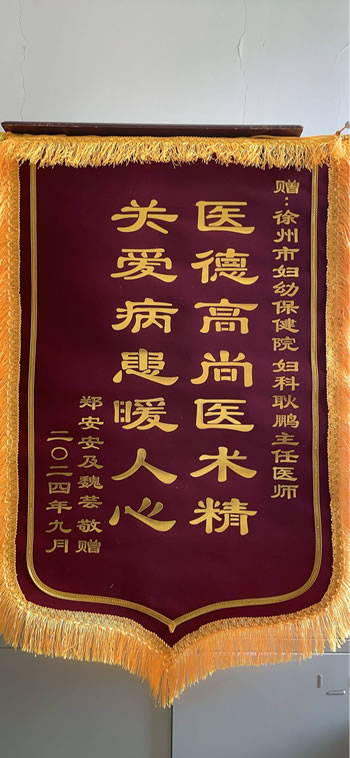 赠:徐州市妇幼保健院 妇科耿鹏主任医师
医德高尚医术精
关爱病患暖人心
郑安安及魏芸 敬赠
二〇二四年九月